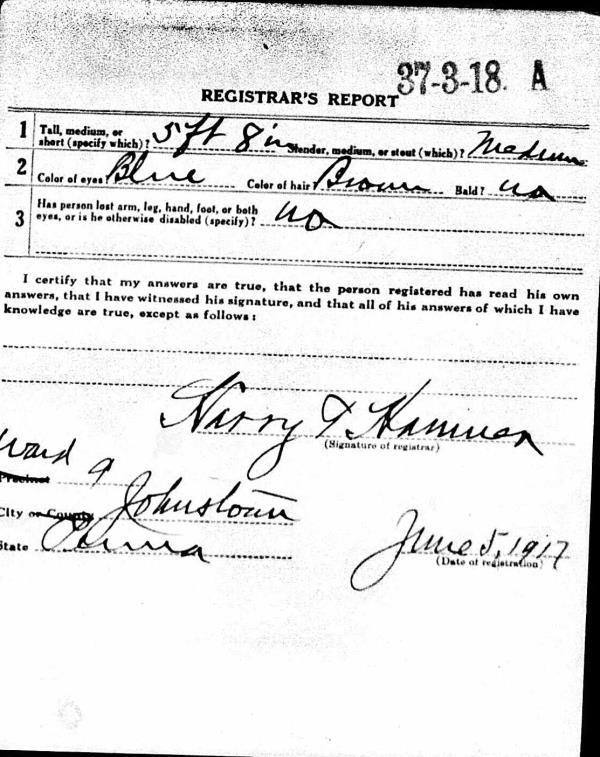 37-3-18. A
REGISTRAR'S REPORT
1 Tall, medium, or short (specify which)? 5 ft 8 in Slender, medium, or stout (which)? Medium
2 Color of eyes Blue Color of hair Brown Bald? no
3 Has person lost arm, leg, hand, foot, or both
eyes, or is he otherwise disabled (specify)? no
I certify that my answers are true, that the person registered has read his own
answers, that I have witnessed his signature, and that all of his answers of which I have
knowledge are true, except as follows:
Harry
(Signature of registrar)
Ward 9
Precinct
City or County Johnstown
State Penna
June 5, 1917
(Date of registration)